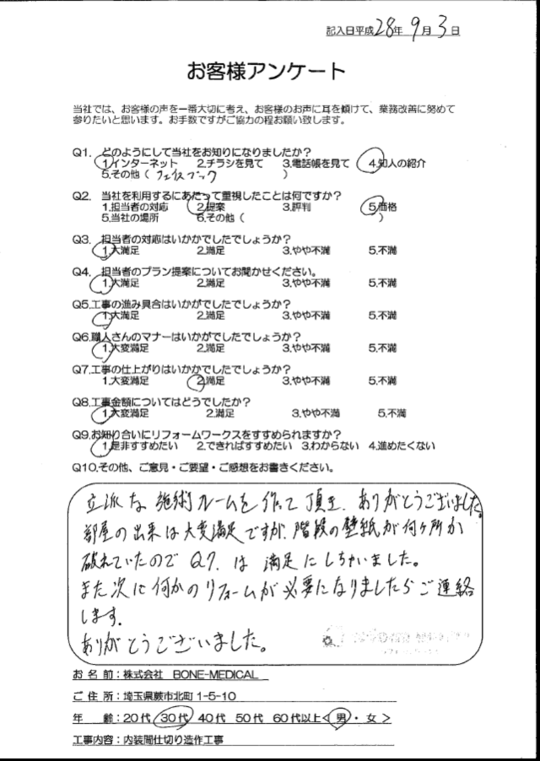 記入日平成28年9月3日
お客様アンケート
当社では、お客様の声を一番大切に考え、お客様のお声に耳を傾けて、業務改善に努めて
参りたいと思います。お手数ですがご協力の程お願い致します。
Q1. どのようにして当社をお知りになりましたか?
1.インターネット 2.チラシを見て 3.電話帳を見て 4.知人の紹介
5.その他 ( フェイスブック )
Q2. 当社を利用するにあたって重視したことは何ですか?
1.担当者の対応 2.提案 3.評判 5.価格
5.当社の場所 6.その他 ( )
Q3. 担当者の対応はいかかでしたでしょうか?
1.大満足 2.満足 3.やや不満 5.不満
Q4. 担当者のプラン提案についてお聞かせください。
1.大満足 2.満足 3.やや不満 5.不満
Q5.工事の進み具合はいかがでしたでしょうか?
1.大満足 2.満足 3.やや不満 5.不満
Q6.職人さんのマナーはいかがでしたでしょうか?
1.大変満足 2.満足 3.やや不満 5.不満
Q7.工事の仕上がりはいかかでしたでしょうか?
1.大変満足 2.満足 3.やや不満 5.不満
Q8.工事金額についてはどうでしたか?
1.大変満足 2.満足 3.やや不満 5.不満
Q9.お知り合いにリフォームワークスをすすめられますか?
1.是非すすめたい 2.できればすすめたい 3.わからない 4.進めたくない
Q10.その他、ご意見・ご要望・ご感想をお書きください。
立派な施術ルームを作って頂き、ありがとうございました。
部屋の出来は大変満足ですが、階段の壁紙が何ヶ所か
破れていたのでQ7.は満足にしちゃいました。
また次に何かのリフォームが必要になりましたらご連絡
します。
ありがとうございました。
お名前:株式会社 BONE-MEDICAL
ご住所:埼玉県蕨市北町1-5-10
年 齢:20代 30代 40代 50代 60代以上<男・女>
工事内容:内装間仕切り造作工事